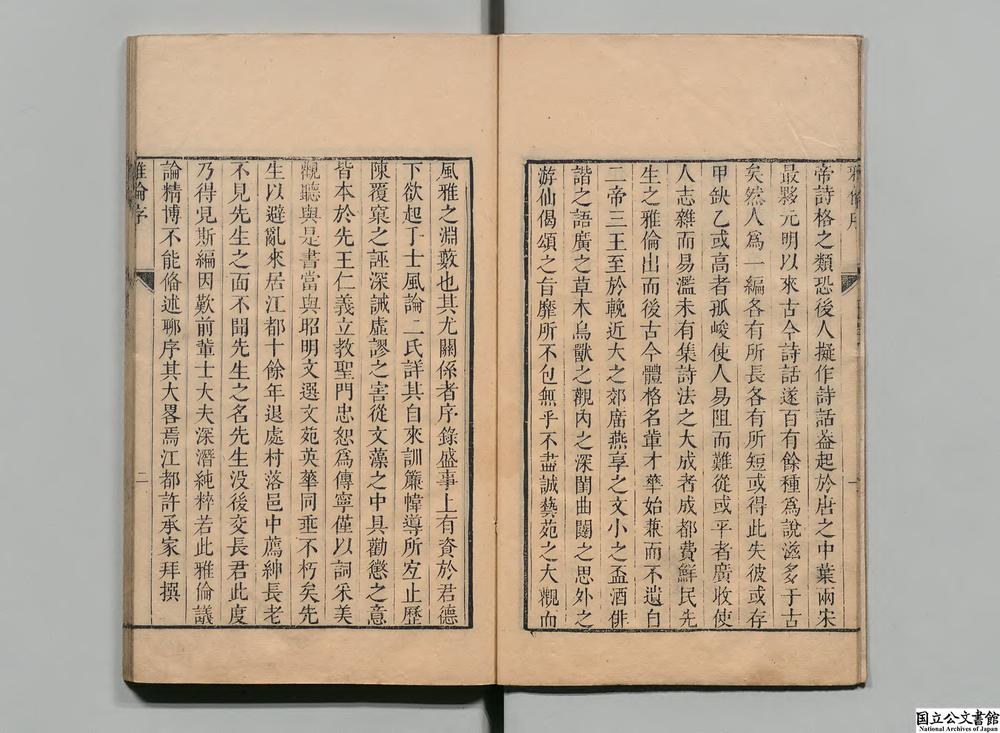 帝詩格之類恐後人擬作詩話益起於唐之中葉兩宋
最夥元明以來古今詩話遂百有餘種爲說滋多于古
矣然人爲一編各有所長各有所短或得此失彼或存
甲缺乙或高者孤峻使人易阻而難從或平者廣收使
人志雜而易濫未有集詩法之大成者成都費鮮民先
生之雅倫出而後古今體格名軰才華始兼而不遺自
二帝三王至於輓近大之郊廟燕享之文小之盃酒俳
諧之語廣之草木鳥獸之觀內之深閨曲闥之思外之
游仙偈頌之旨靡所不包無乎不盡誠藝苑之大觀而
風雅之淵藪也其尤關係者序錄盛事上有資於君德
下欲起丁士風論二氏詳其自來訓簾幃導所宜止歷
陳覆窠之誣深誡虛謬之害從文藻之中具勸懲之意
皆本於先王仁義立教聖門忠恕爲傳寧僅以詞采美
觀聽與是書當與昭明文選文苑英華同垂不朽矣先
生以避亂來居江都十餘年退處村落邑中薦紳長老
不見先生之面不聞先生之名先生没後交長君此度
乃得見斯編因歎前輩士大夫深潛純粹若此雅倫議
論精博不能備述聊序其大畧焉江都許承家拜撰
雅倫序
二
国立公文書館
National Archives of Japan